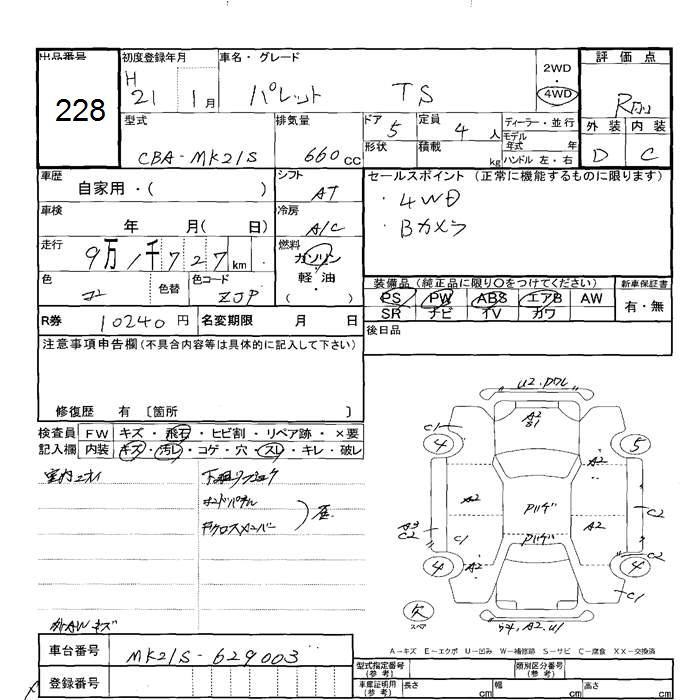 出品番号 初度登録年月 車名・グレード 評価点
228
H 21 1月 パレット TS
2WD
4WD
型式 排気量 ドア 定員 ディーラー・並行 外装 内装
CBA-MK21S 660cc 5 4人
モデル年式 年
形状 積載 kg ハンドル 左・右
D C
車歴 自家用・( )
シフト AT
セールスポイント(正常に機能するものに限ります)
・4WD
・Bカメラ
車検 年 月( 日)
冷房 A/C
走行 9万1千727km
燃料 ガソリン
軽・油
( )
色 色替 色コード ZJP
装備品(純正品に限り〇をつけてください) 新車保証書
PS PW ABS エアB AW 有・無
SR ナビ TV カワ
R券 10240円 名変期限 月 日
後日品
注意事項申告欄(不具合内容等は具体的に記入して下さい)
修復歴 有 〔箇所 〕
検査員 FW キズ・飛石・ヒビ割・リペア跡・×要
記入欄 内装 キズ・汚レ・コゲ・穴・スレ・キレ・破レ
クロスメンバー
AW キズ
U2
A2
S1
C1
4
5
A2
A2
Pハゲ
A2
C2
A3
C2
C1
Pハゲ
C2
4
A2
4
C1
欠
スペア
A2.U1
A-キズ E-エクボ U-凹み W-補修跡 S-サビ C-腐食 XX-交換済
車台番号 MK21S-629003
型式指定番号(参考) 類別区分番号(参考)
登録番号
車庫証明用(参考) 長さ cm 幅 cm 高さ cm